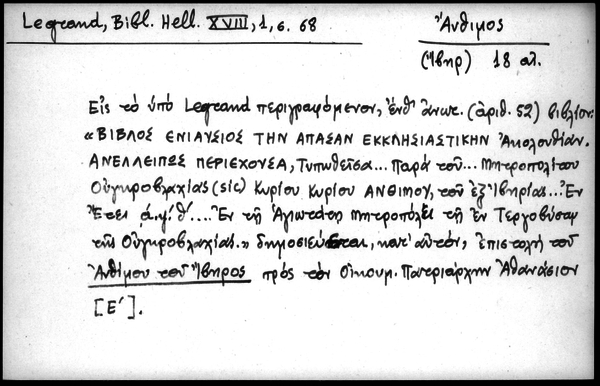 Legrand, Bibl. Hell. XVIII, 1, σ. 68
Ἄνθιμος
(Ἴβηρ) 18 αἰ.
Εἰς τὸ ὑπὸ Legrand περιγραφόμενον, ἔνθ' ἄνωτ. (ἀριθ. 52) βιβλίον:
«ΒΙΒΛΟΣ ΕΝΙΑΥΣΙΟΣ ΤΗΝ ΑΠΑΣΑΝ ΕΚΚΛΗΣΙΑΣΤΙΚΗΝ Ἀκολουθίαν.
ΑΝΕΛΛΕΙΠΩΣ ΠΕΡΙΕΧΟΥΣΑ, Τυπωθεῖσα... Παρὰ τοῦ... Μητροπολίτου
Οὑγκροβλαχίας (sic) Κυρίου Κυρίου ΑΝΘΙΜΟΥ, τοῦ ἐξ Ἰβηρίας... Ἐν
Ἔτει ͵αψθ΄.... Ἐν τῇ Ἁγιωτάτῃ Μητροπόλει τῇ ἐν Τεργοβύστῳ
τῆς Οὑγκροβλαχίας.» δημοσιεύεται, κατ' αὐτόν, ἐπιστολὴ τοῦ
Ἀνθίμου τοῦ Ἴβηρος πρὸς τὸν Οἰκουμ. Πατριάρχην Ἀθανάσιον
[Ε΄].